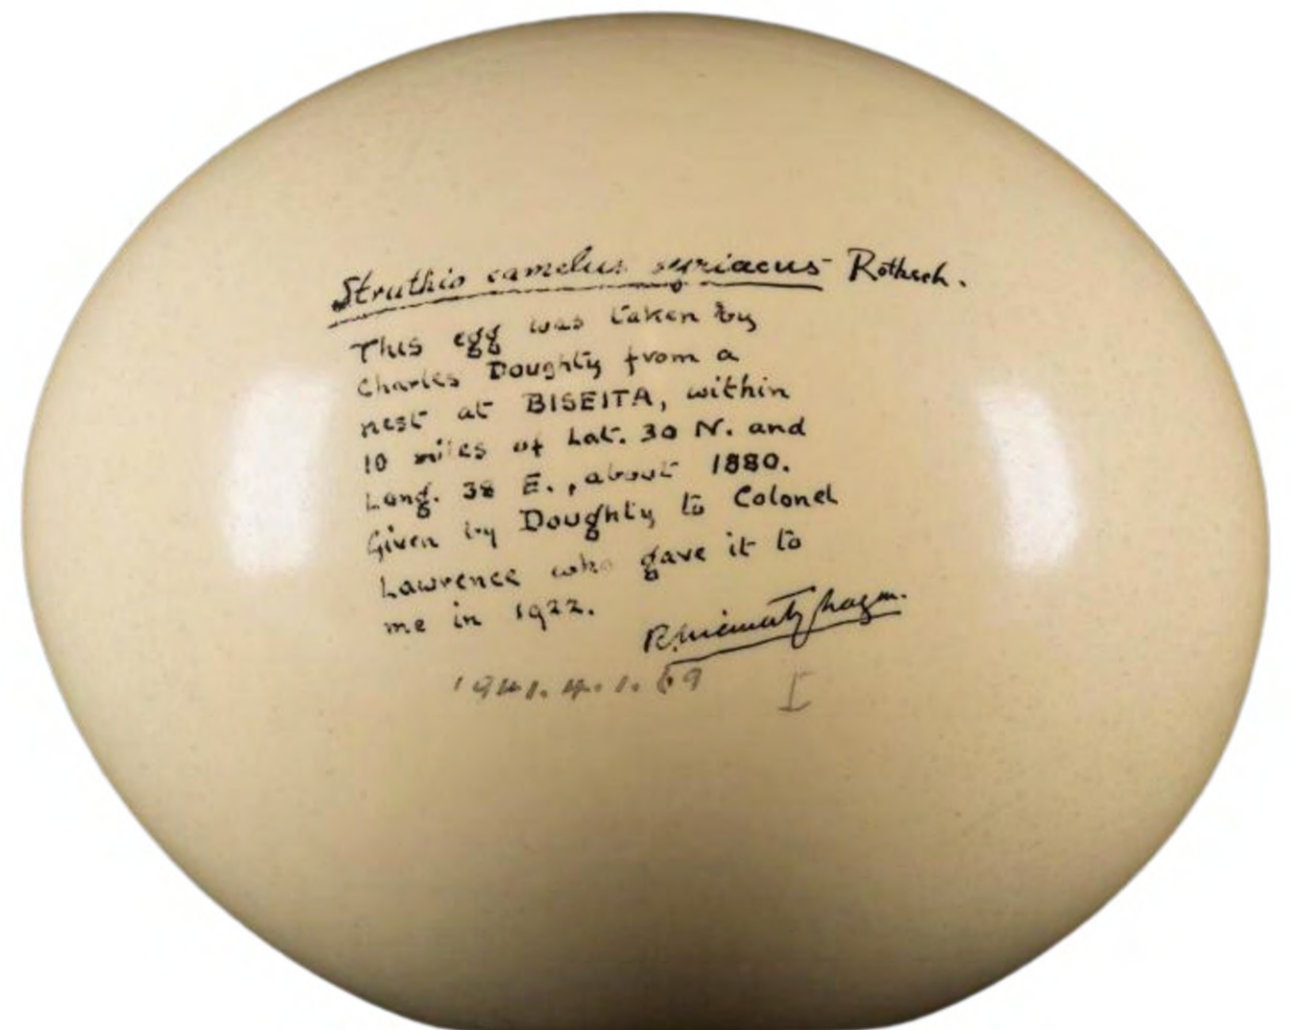 Struthio camelus syriacus Rothsch.
This egg was taken by
Charles Doughty from a
nest at BISEITA, within
10 miles of Lat. 30 N. and
Long. 38 E., about 1880.
Given by Doughty to Colonel
Lawrence who gave it to
me in 1922.
R. Meinertzhagen.
1941.4.1.69
I